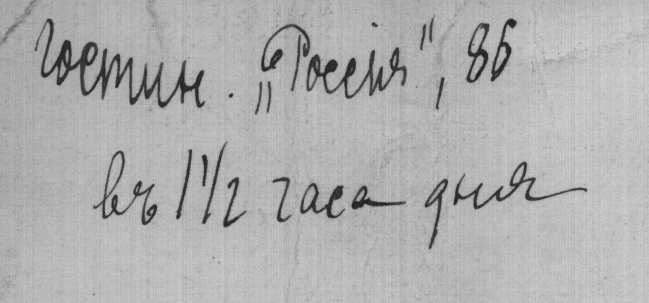 гостин. „Россія", 86
въ 1 1/2 часа дня